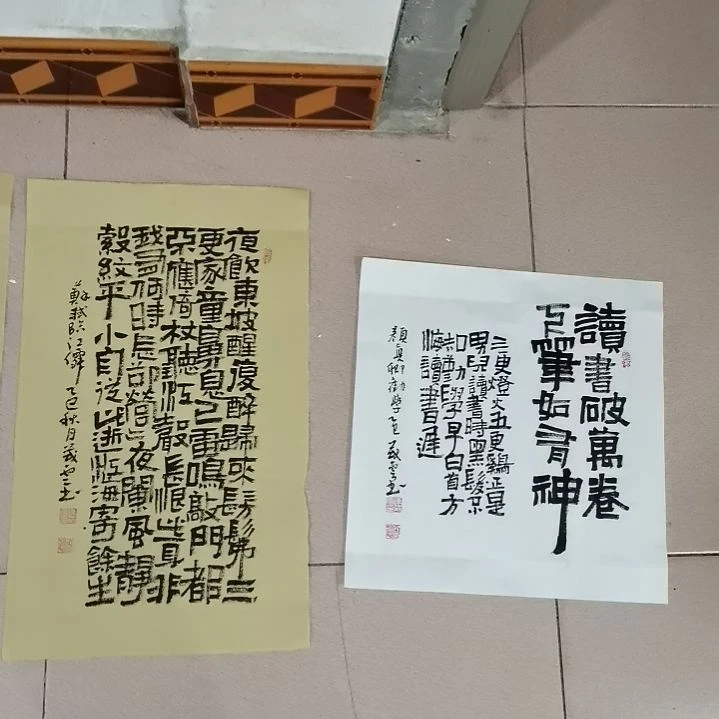 夜飲東坡醒復醉歸來髣髴三
更家童鼻息已雷鳴敲門都
不應倚杖聽江聲長恨此身非
我有何時忘却營〻夜闌風靜
縠紋平小舟從此逝江海寄餘生
蘇軾臨江僊 乙巳秋月 書
讀書破萬卷
下筆如有神
三更燈火五更鷄正是
男兒讀書時黑髮不
知勤學早白首方
悔讀書遲
顏真卿勸學 乙巳 書